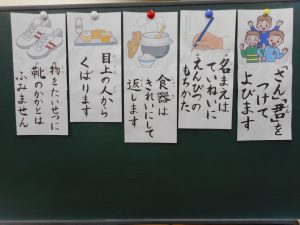 「さん」「君」を
つけて
よびます
名まえは
ていねいに
えんぴつの
もちかた
食器は
きれいにして
返します
目上の人から
くばります
物をたいせつに
靴のかかとは
ふみません